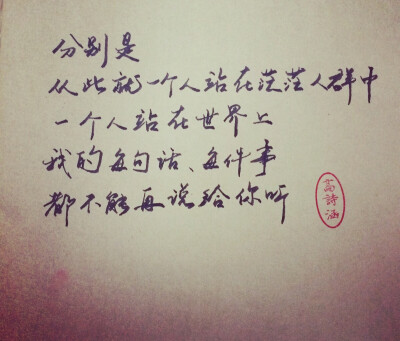 分别是
从此就一个人站在茫茫人群中
一个人站在世界上
我的每句话、每件事
都不能再说给你听
高詩涵